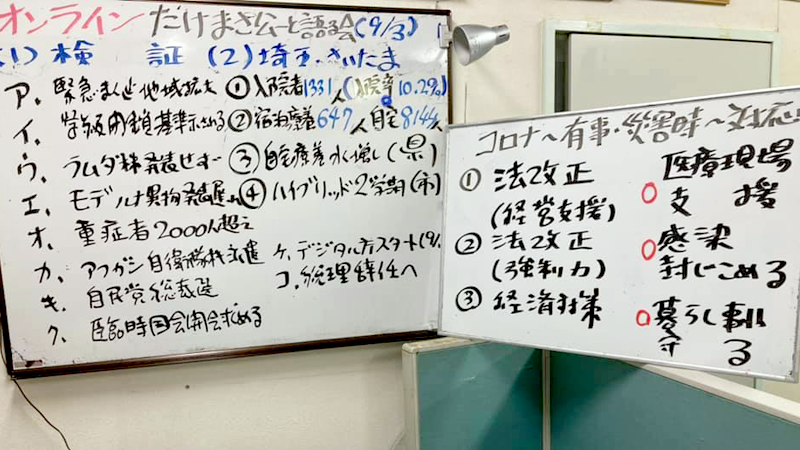 オンライン だけまさ公一と語る会(9/3)
(1) 検 証 (2) 埼玉・さいたま
ア、緊急・まん延地域拡大
イ、学級閉鎖基準示される
ウ、ラムダ株発表せず
エ、モデルナ異物発覚
オ、重症者2000人超え
カ、アフガン自衛隊機派遣
キ、自民党総裁選
ク、臨時国会開会求める
① 入院者1331人(入院率10.2%)
② 宿泊療養647人 自宅8144人
③ 自宅療養水増し(県)
④ ハイブリッド2学期(市)
ケ、デジタル庁スタート(9/
コ、総理辞任へ
コロナ〜有事・災害時〜対応
① 法改正
(経営支援)
② 法改正
(強制力)
③ 経済対策
医療現場
○支 援
○感染
封じこめる
○暮らし・事業
守る